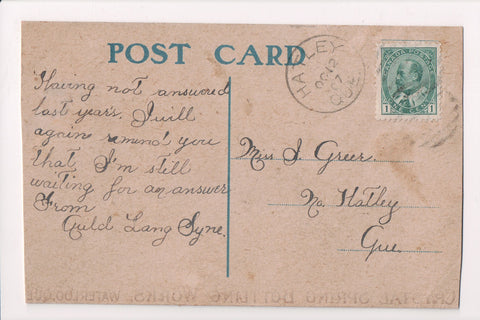 POST CARD
Having not answered
last year's. I will
again remind you
that I'm still
waiting for an answer
From
Auld Lang Syne.
HATLEY
OC 12
7
QUE
CANADA POSTAGE
1 1
Miss I. Greer.
No. Hatley
Que.
CRYSTAL SPRING BOTTLING WORKS. WATERLOO, QUE